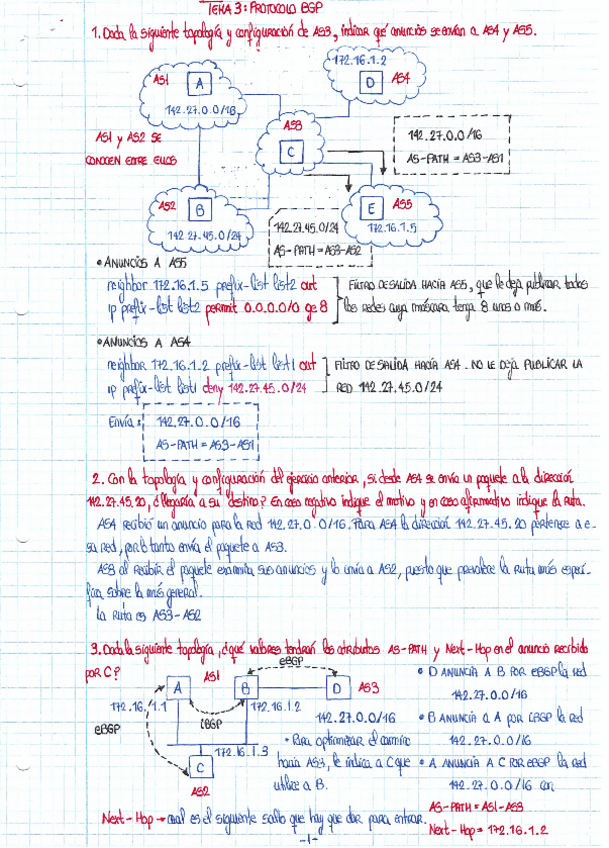 TEMA 3: PROTOCOLO BGP
1. Dada la siguiente topología y configuración de AS3, indicar qué anuncios se envían a AS4 y AS5.
AS1
A
142.27.0.0/16
172.16.1.2
D
AS4
AS1 y AS2 SE
CONOCEN ENTRE ELLOS
AS3
C
142.27.0.0/16
AS-PATH = AS3-AS1
AS2
B
142.27.45.0/24
142.27.45.0/24
AS-PATH = AS3-AS2
E
AS5
172.16.1.5
• ANUNCIOS A AS5
neighbor 172.16.1.5 prefix-list list2 out
ip prefix-list list2 permit 0.0.0.0/0 ge 8
FILTRO DE SALIDA HACIA AS5, que le deja publicar todas
las redes cuya máscara tenga 8 unos o más.
• ANUNCIOS A AS4
neighbor 172.16.1.2 prefix-list list1 out
ip prefix-list list1 deny 142.27.45.0/24
FILTRO DE SALIDA HACIA AS4. NO LE DEJA PUBLICAR LA
RED 142.27.45.0/24
Envía:
142.27.0.0/16
AS-PATH = AS3-AS1
2. Con la topología y configuración del ejercicio anterior, si desde AS4 se envía un paquete a la dirección
142.27.45.20, ¿llegaría a su destino? En caso negativo indique el motivo y en caso afirmativo indique la ruta.
AS4 recibió un anuncio para la red 142.27.0.0/16. Para AS4 la dirección 142.27.45.20 pertenece a e-
sa red, por lo tanto envía el paquete a AS3.
AS3 al recibir el paquete examina sus anuncios y lo envía a AS2, puesto que prevalece la ruta más especí-
fica sobre la más general.
La ruta es AS3-AS2
3. Dada la siguiente topología, ¿qué valores tendrán los atributos AS-PATH y Next-Hop en el anuncio recibido
por C?
AS1
eBGP
A
B
D
AS3
172.16.1.1
172.16.1.2
142.27.0.0/16
eBGP
iBGP
172.16.1.3
C
AS2
• Para optimizar el camino
hacia AS3, le indica a C que
utilice a B.
• D ANUNCIA A B POR eBGP la red
142.27.0.0/16
• B ANUNCIA A A por iBGP la red
142.27.0.0/16
• A ANUNCIA A C POR eBGP la red
142.27.0.0/16 con
AS-PATH = AS1-AS3
Next-Hop = 172.16.1.2
Next-Hop → cual es el siguiente salto que hay que dar para entrar.
-1-